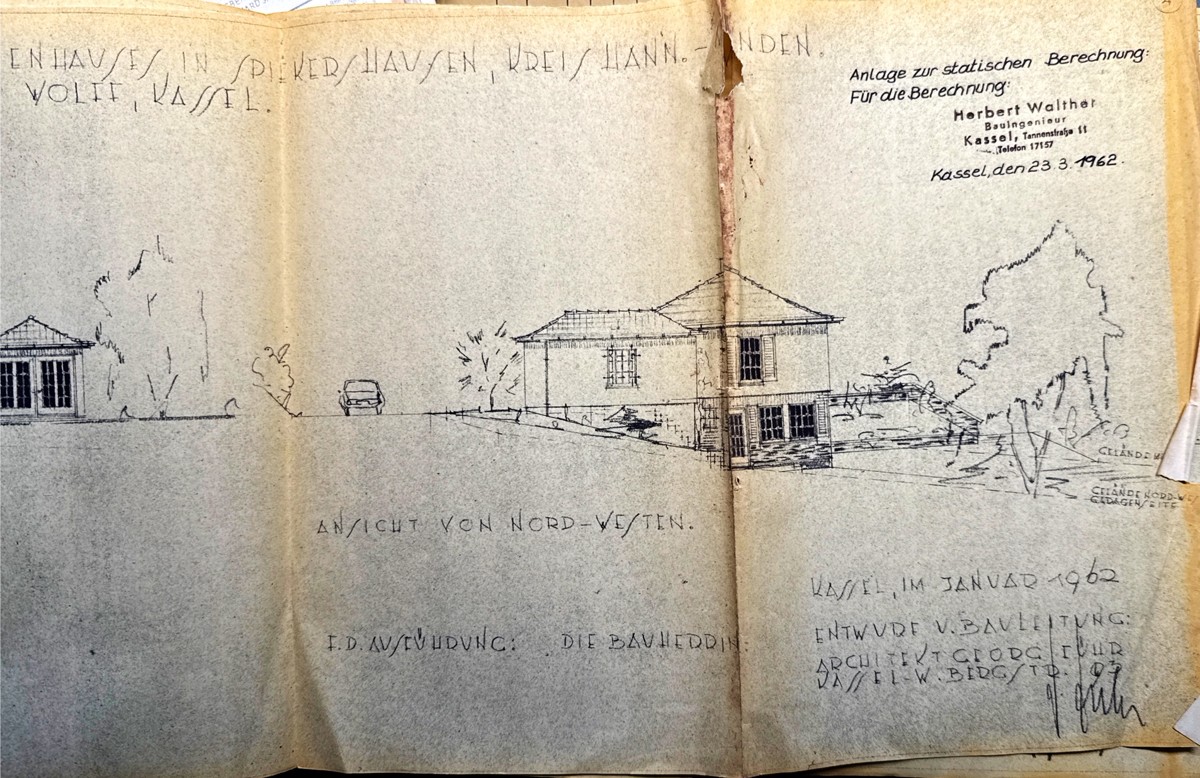 ENHAUSES IN SPIEKERSHAUSEN, KREIS HANN.- NDEN.
WOLFF, KASSEL.
Anlage zur statischen Berechnung:
Für die Berechnung:
Herbert Walther
Bauingenieur
Kassel, Tannenstraße 11
Telefon 17157
Kassel, den 23.3.1962.
GELÄNDE
GELÄNDE NORD-W
GARAGENSEITE
ANSICHT VON NORD-WESTEN.
KASSEL, IM JANUAR 1962
F.D. AUSFÜHRUNG: DIE BAUHERRIN:
ENTWURF U. BAULEITUNG:
ARCHITEKT GEORG FÜHR
KASSEL-W. BERGSTR.